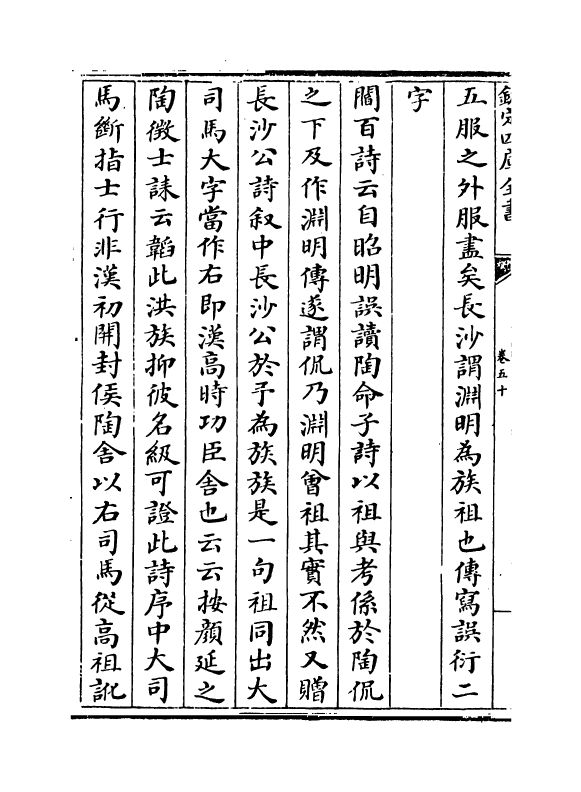 欽定四庫全書
卷五十
五服之外服盡矣長沙謂淵明為族祖也傳寫誤衍二
字
閻百詩云自昭明誤讀陶命子詩以祖與考係於陶侃
之下及作淵明傳遂謂侃乃淵明曾祖其實不然又贈
長沙公詩叙中長沙公於予為族族是一句祖同出大
司馬大字當作右即漢高時功臣舍也云云按顔延之
陶徵士誄云韜此洪族抑彼名級可證此詩序中大司
馬斷指士行非漢初開封侯陶舍以右司馬從高祖訛